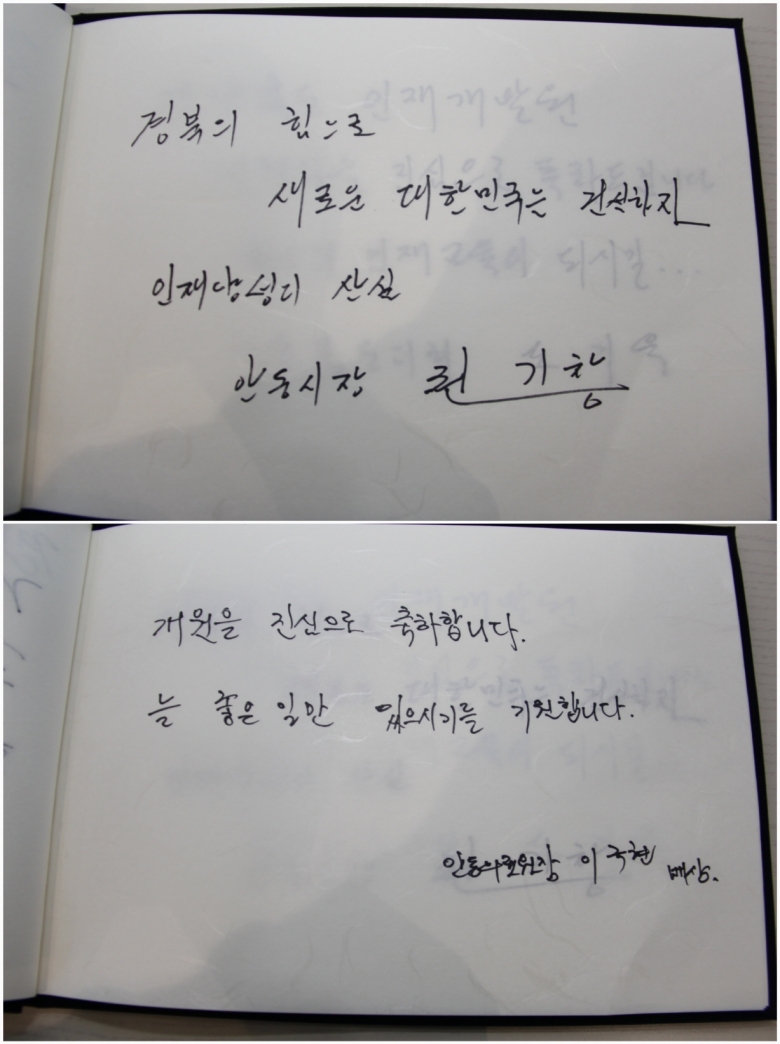 경북의 힘으로
새로운 대한민국는 건설하자
인재양성의 산실
안동시장 권 기 창
개원을 진심으로 축하합니다.
늘 좋은 일만 있으시기를 기원합니다.
안동의료원장 이국현 배상.
인재개발원
되시길...